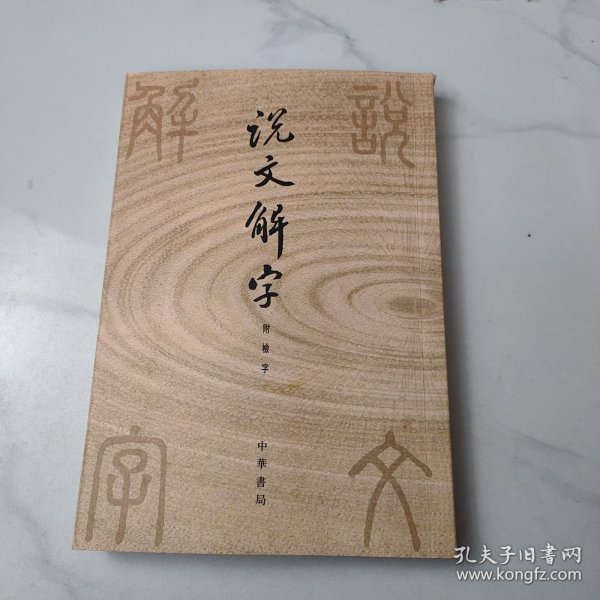 说文解字
附檢字
中華書局
說
文
解
字
孔夫子旧書网
www.kongfz.com